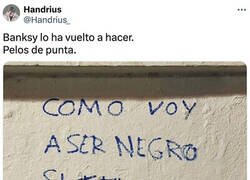 Handrius
@Handrius_
Banksy lo ha vuelto a hacer.
Pelos de punta.
COMO VOY
A SER NEGRO